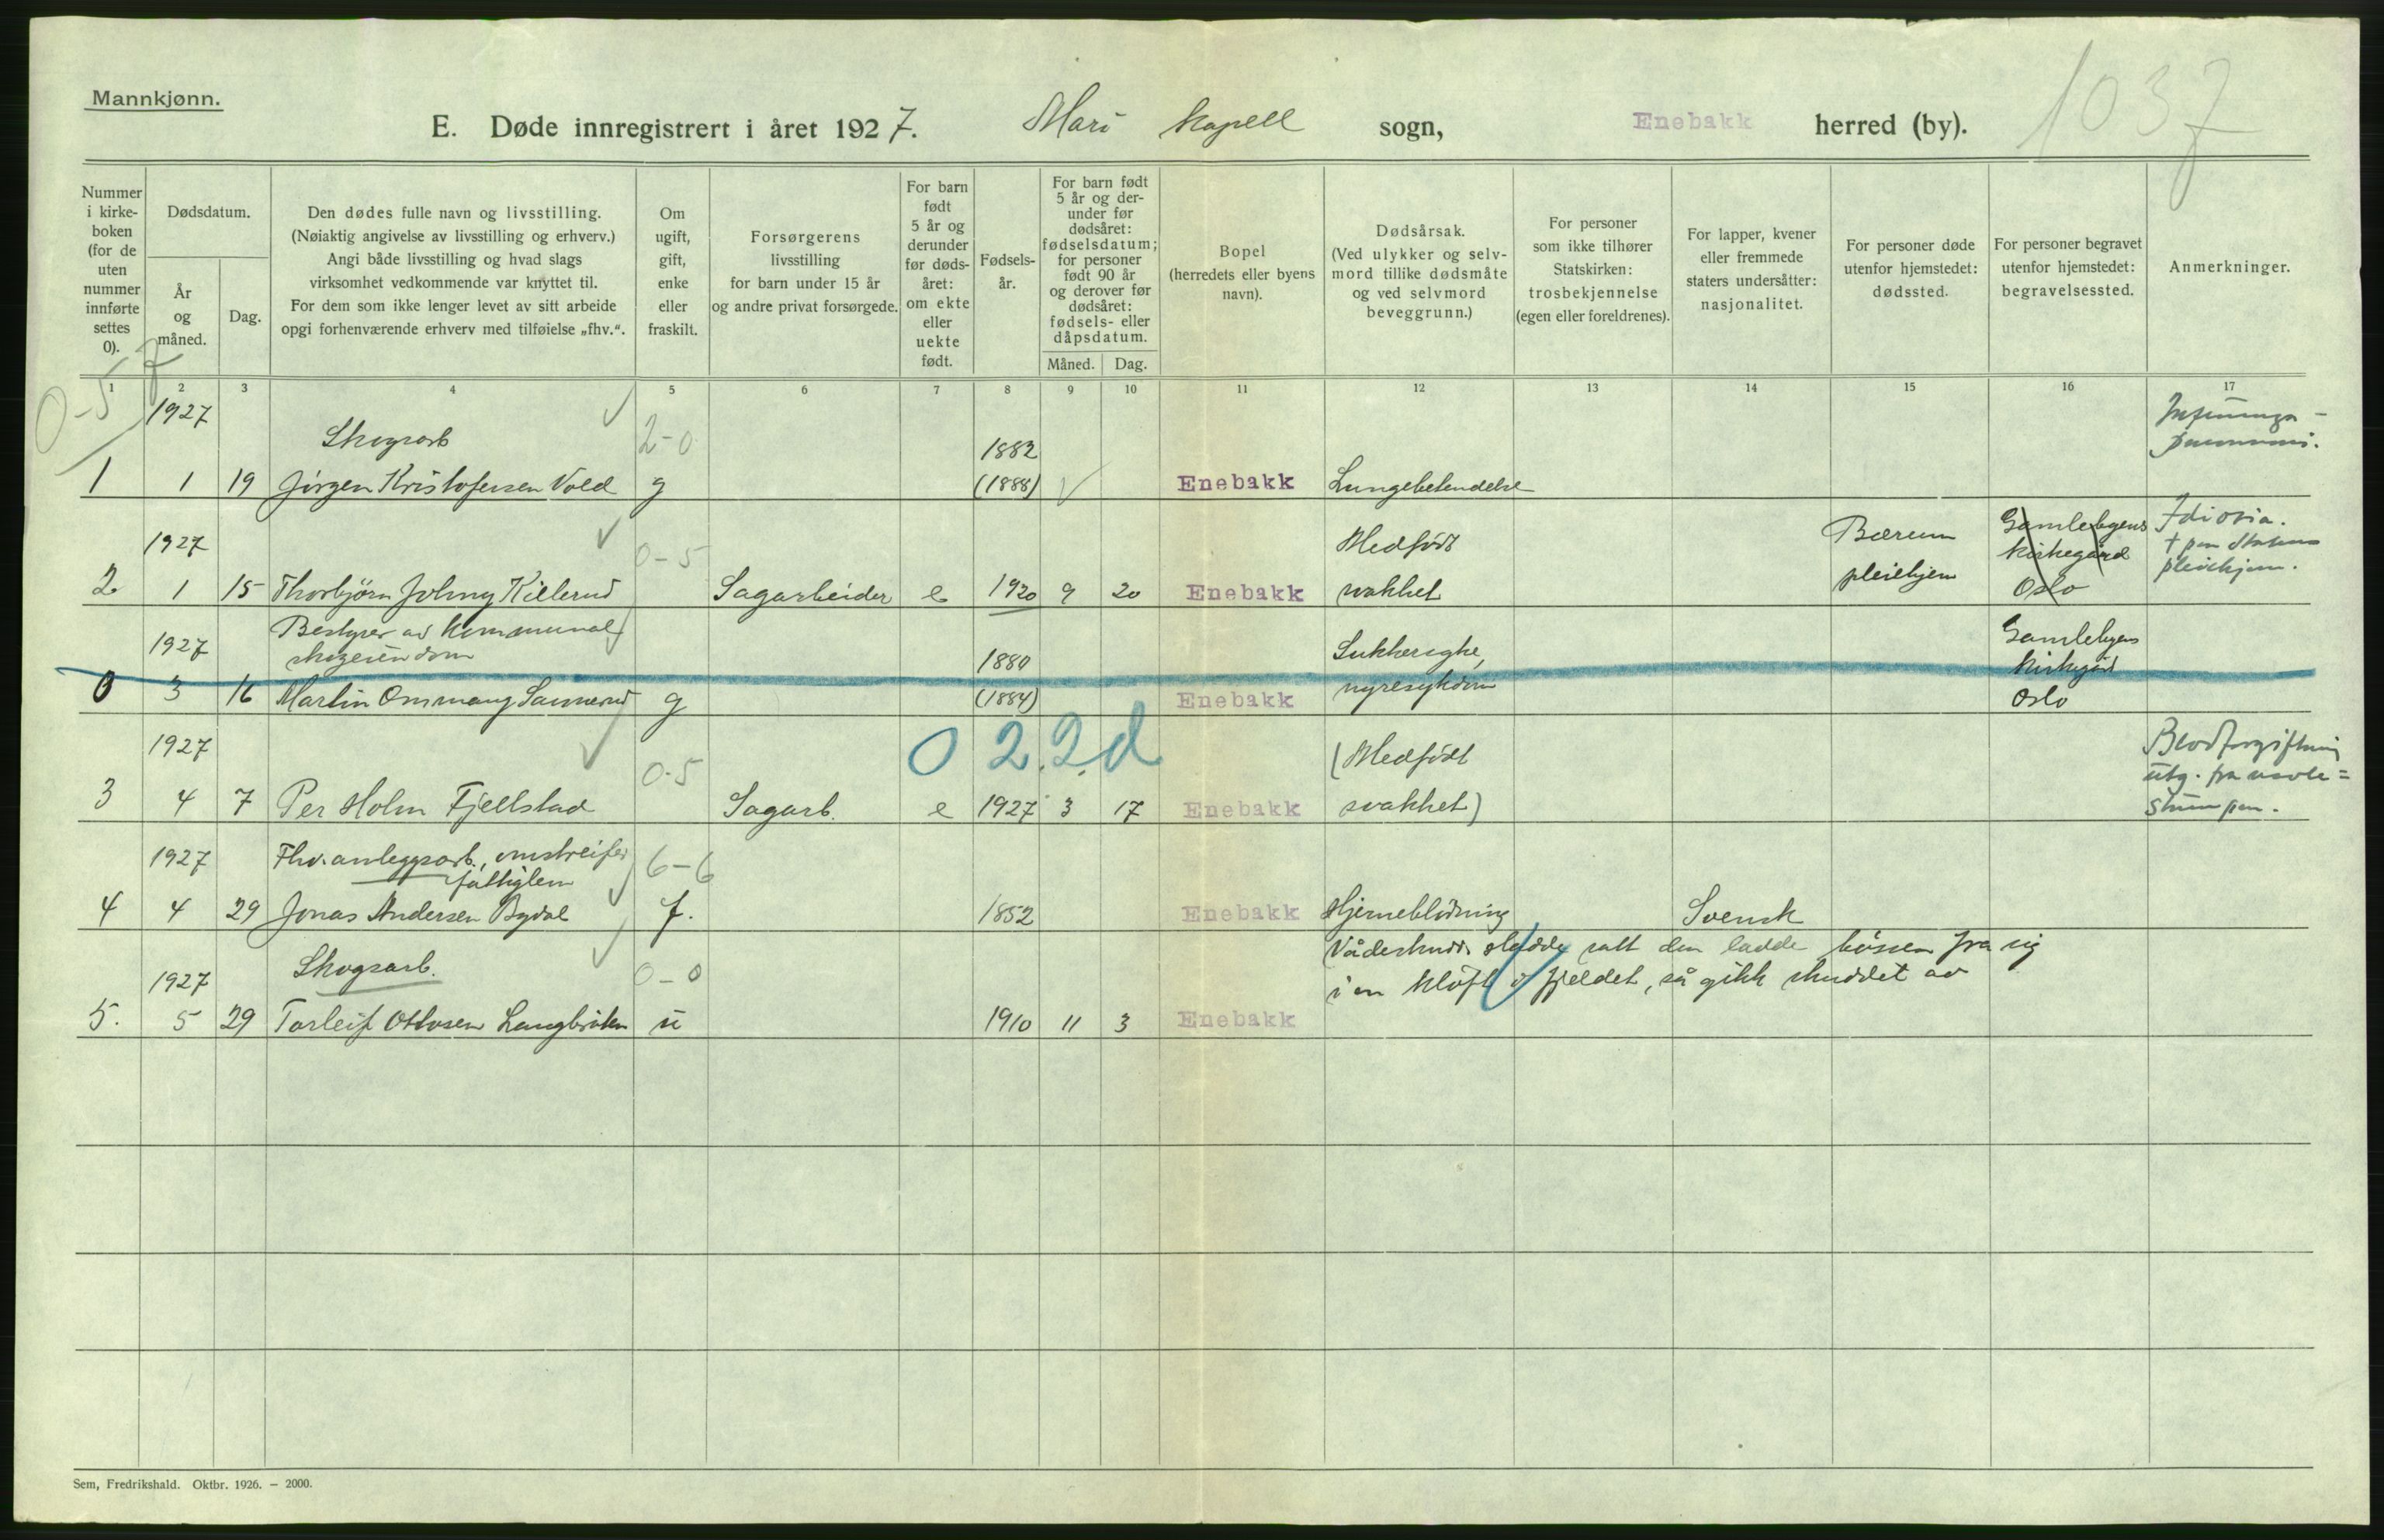 Mannkjønn.
E. Døde innregistrert i året 1927. Mari kapell sogn, Enebakk herred (by). 1037
Nummer i kirke-boken (for de uten nummer innførte settes 0).
Dødsdatum.
År og måned.
Dag.
Den dødes fulle navn og livsstilling.
(Nøiaktig angivelse av livsstilling og erhverv.)
Angi både livsstilling og hvad slags
virksomhet vedkommende var knyttet til.
For dem som ikke lenger levet av sitt arbeide
opgi forhenværende erhverv med tilføielse „fhv.“.
Om ugift, gift, enke eller fraskilt.
Forsørgerens
livsstilling
for barn under 15 år
og andre privat forsørgede.
For barn født 5 år og derunder før døds-året: om ekte eller uekte født.
Fødsels-år.
For barn født 5 år og der-under før dødsåret: fødselsdatum; for personer født 90 år og derover før dødsåret: fødsels- eller dåpsdatum.
Måned. Dag.
Bopel
(herredets eller byens
navn).
Dødsårsak.
(Ved ulykker og selv-
mord tillike dødsmåte
og ved selvmord
beveggrunn.)
For personer
som ikke tilhører
Statskirken:
trosbekjennelse
(egen eller foreldrenes).
For lapper, kvener
eller fremmede
staters undersåtter:
nasjonalitet.
For personer døde
utenfor hjemstedet:
dødssted.
For personer begravet
utenfor hjemstedet:
begravelsessted.
Anmerkninger.
1 2 3 4 5 6 7 8 9 10 11 12 13 14 15 16 17
0-5 7
1927
Skogsarb 2-0 1882
1 1 19 Jörgen Kristofersen Vold g (1888) Enebakk Lungebetendelse
1927 0-5 Medfödt Bærum Gamlebyens Idioti.
kirkegård
2 1 15 Thorbjörn Johny Killerud Sagarbeider e 1920 9 20 Enebakk svakhet pleiehjem Oslo pleiehjem.
1927 Bestyrer av kommunal
skogeiendom 1880 Sukkersyke, Gamlebyens
kirkegård
0 3 16 Martin Ommang Sannerud g (1884) Enebakk nyresykdom Oslo
0 2.2.d
1927 0-5 (Medfödt Blodforgiftning
utg. fra navle=
3 4 7 Per Holm Fjellstad Sagarb. e 1927 3 17 Enebakk svakhet) stumpen.
1927 Fhv. anleggsarb., omstreifer 6-6
fattiglem
4 4 29 Jonas Andersen Bydal f. 1852 Enebakk Hjerneblödning Svensk
Vådeskudd. satt den ladde bössen fra sig
1927 Skogsarb. 0-0 i en klöft i fjeldet, så gikk skuddet av
5. 5 29 Torleif Ottosen Langbråten u 1910 11 3 Enebakk
Sem, Fredrikshald. Oktbr. 1926. – 2000.